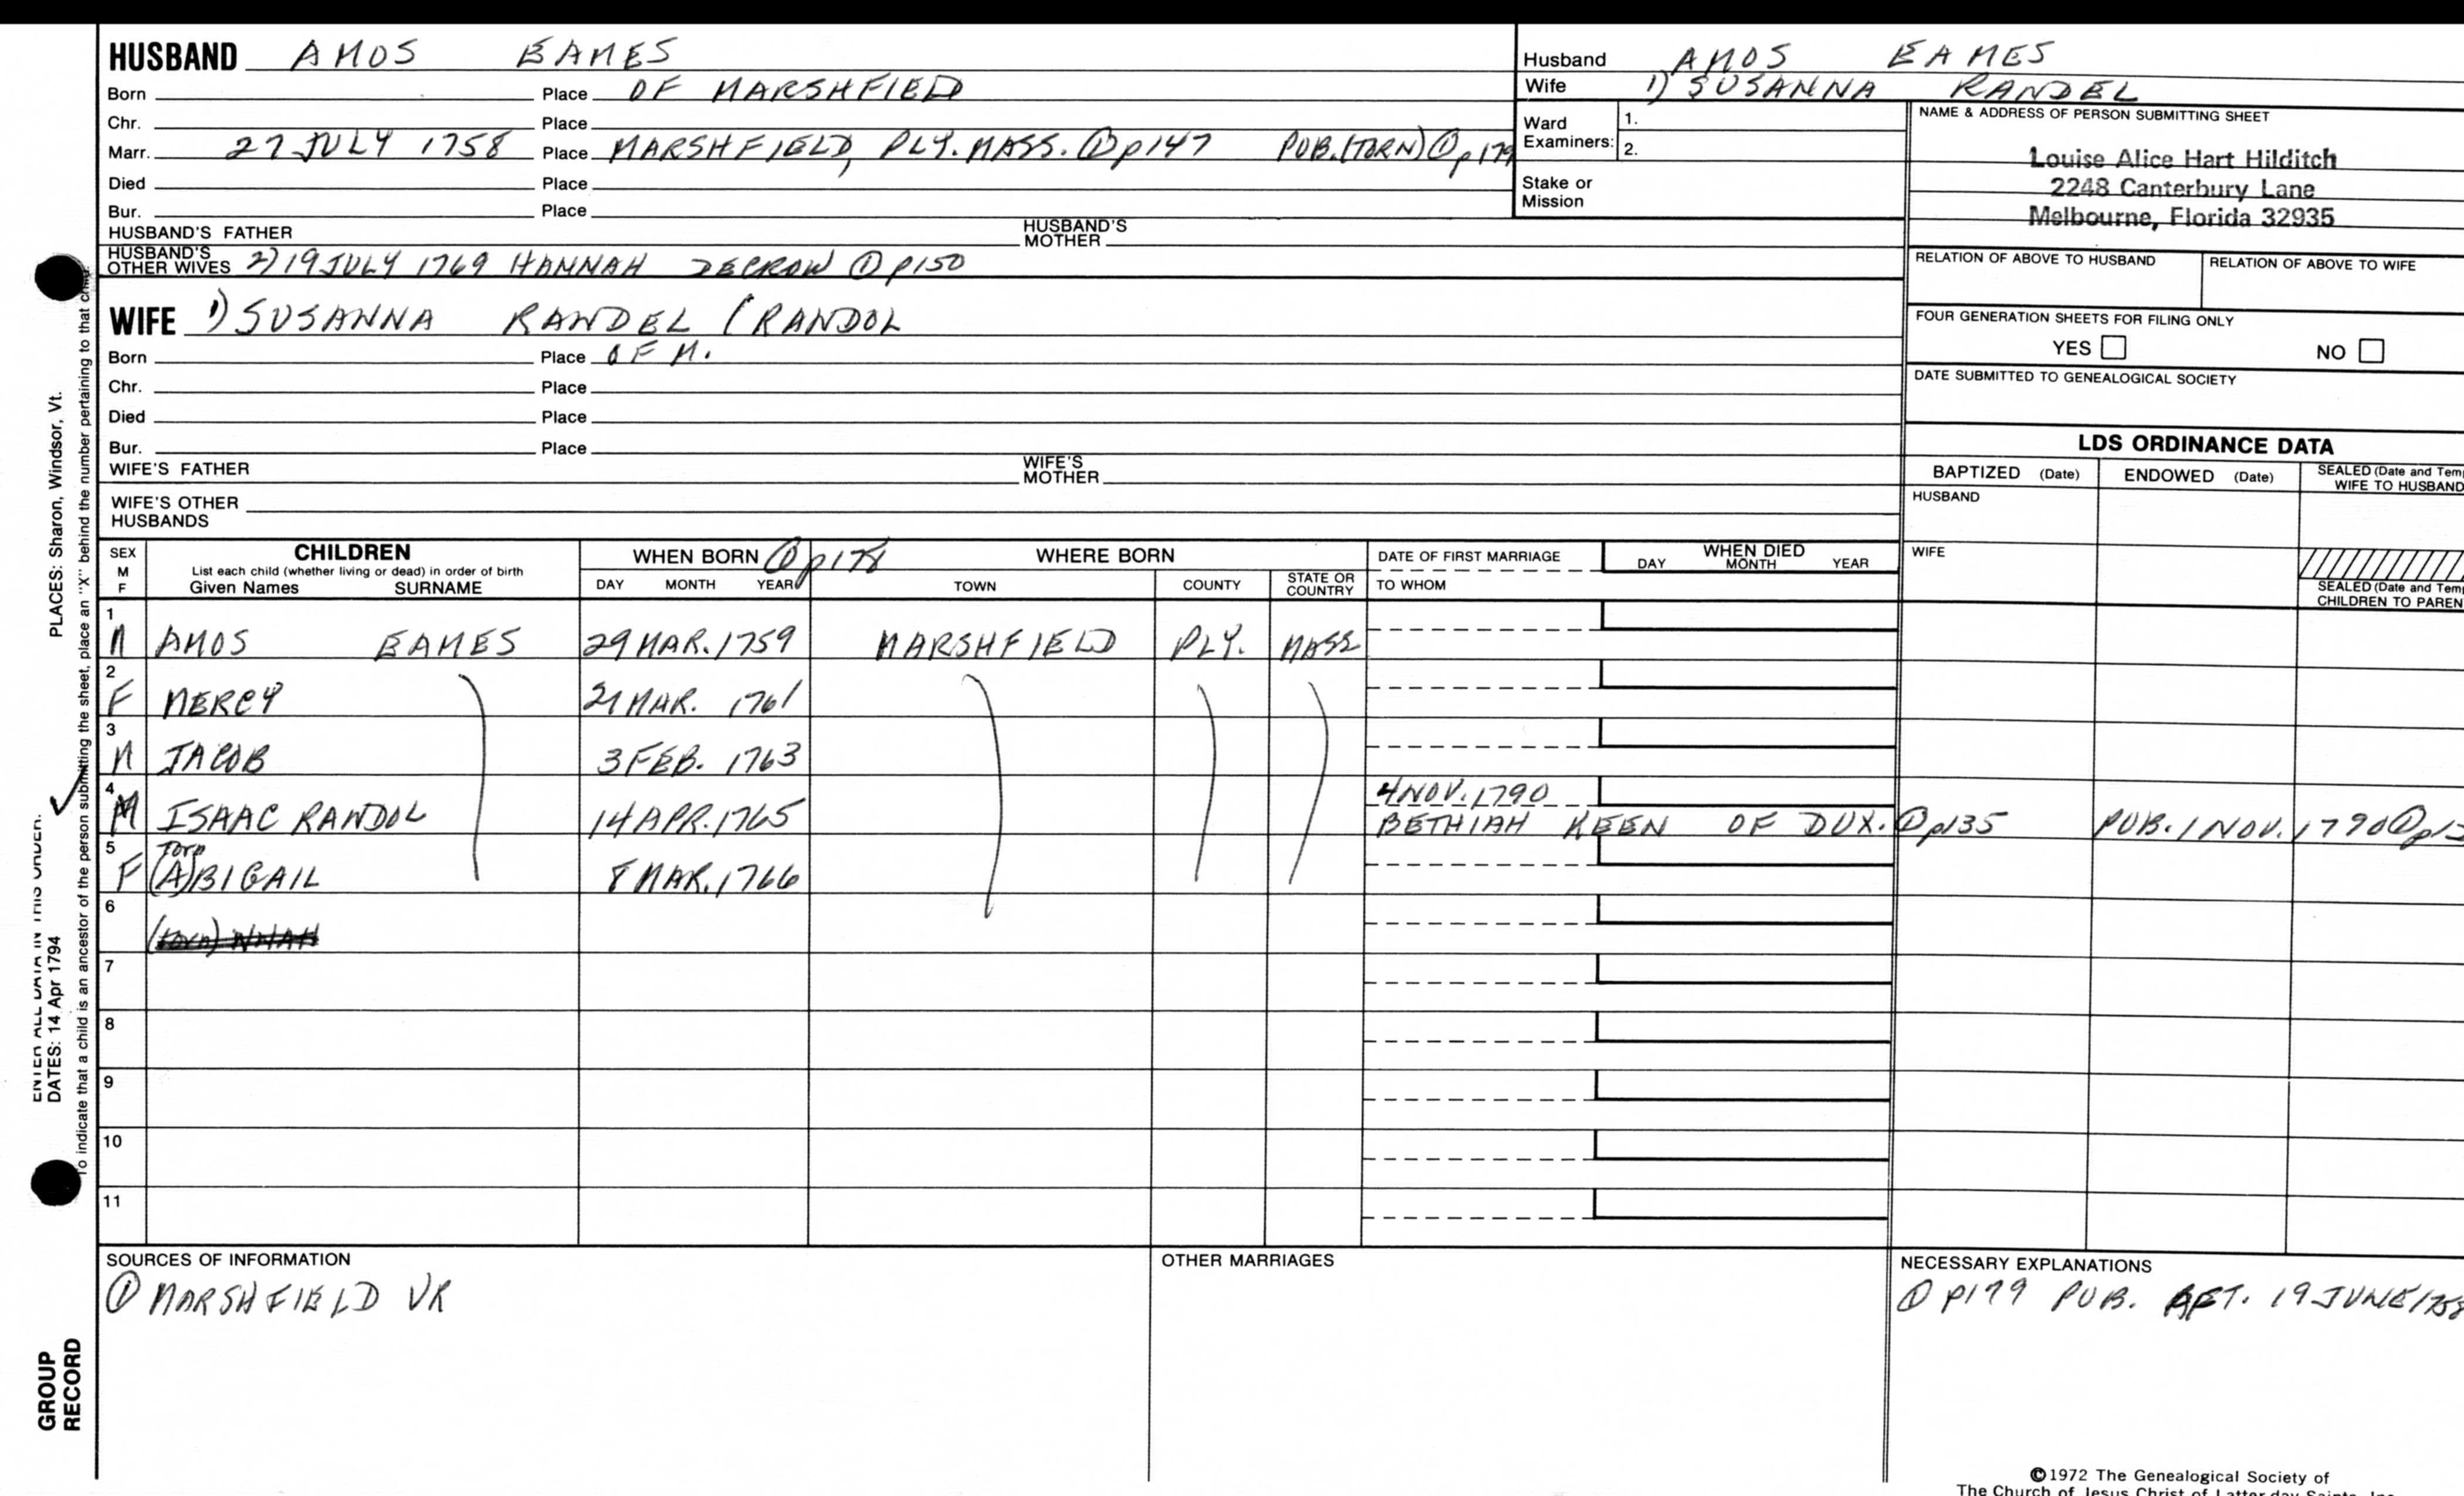 HUSBAND AMOS EAMES
Born Place OF MARSHFIELD
Chr. Place
Marr. 27 JULY 1758 Place MARSHFIELD, PLY. MASS. ① p147 PUB. (TORN) ① p179
Died Place
Bur. Place
HUSBAND'S FATHER HUSBAND'S MOTHER
HUSBAND'S OTHER WIVES 2) 19 JULY 1769 HANNAH DECROW ① p150
WIFE 1) SUSANNA RANDEL (RANDOL
Born Place OF M.
Chr. Place
Died Place
Bur. Place
WIFE'S FATHER WIFE'S MOTHER
WIFE'S OTHER HUSBANDS
Husband AMOS EAMES
Wife 1) SUSANNA RANDEL
Ward Examiners: 1.
2.
Stake or Mission
NAME & ADDRESS OF PERSON SUBMITTING SHEET
Louise Alice Hart Hilditch
2248 Canterbury Lane
Melbourne, Florida 32935
RELATION OF ABOVE TO HUSBAND RELATION OF ABOVE TO WIFE
FOUR GENERATION SHEETS FOR FILING ONLY
YES NO
DATE SUBMITTED TO GENEALOGICAL SOCIETY
LDS ORDINANCE DATA
BAPTIZED (Date) ENDOWED (Date) SEALED (Date and Tem
WIFE TO HUSBAND
HUSBAND
WIFE
SEALED (Date and Tem
CHILDREN TO PAREN
SEX M F CHILDREN WHEN BORN ① p178 WHERE BORN DATE OF FIRST MARRIAGE WHEN DIED
List each child (whether living or dead) in order of birth
Given Names SURNAME DAY MONTH YEAR TOWN COUNTY STATE OR COUNTRY TO WHOM DAY MONTH YEAR
1 M AMOS EAMES 29 MAR. 1759 MARSHFIELD PLY. MASS
2 F MERCY 21 MAR. 1761
3 M JACOB 3 FEB. 1763
4 M ISAAC RANDOL 14 APR. 1765 4 NOV. 1790
BETHIAH KEEN OF DUX. ① p135 PUB. 1 NOV. 1790 ①
5 F TORN (A)BIGAIL 8 MAR. 1766
6 (torn) NNAH
7
8
9
10
11
SOURCES OF INFORMATION
① MARSHFIELD VR
OTHER MARRIAGES
NECESSARY EXPLANATIONS
① P179 PUB. AFT. 19 JUNE 1758
©1972 The Genealogical Society of
The Church of Jesus Christ of Latter-day Saints, Inc.
ENTER ALL DATA IN THIS ORDER:
DATES: 14 Apr 1794 PLACES: Sharon, Windsor, Vt.
To indicate that a child is an ancestor of the person submitting the sheet, place an "X" behind the number pertaining to that child.
GROUP
RECORD